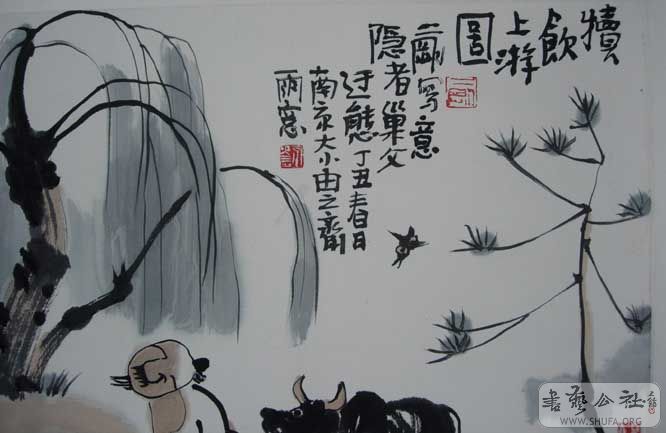 犢
飲
上游
圖
二剛寫意
隱者巢父
迂態丁丑春日
南京大小由之齋
雨窓
書藝公社
WWW.SHUFA.ORG